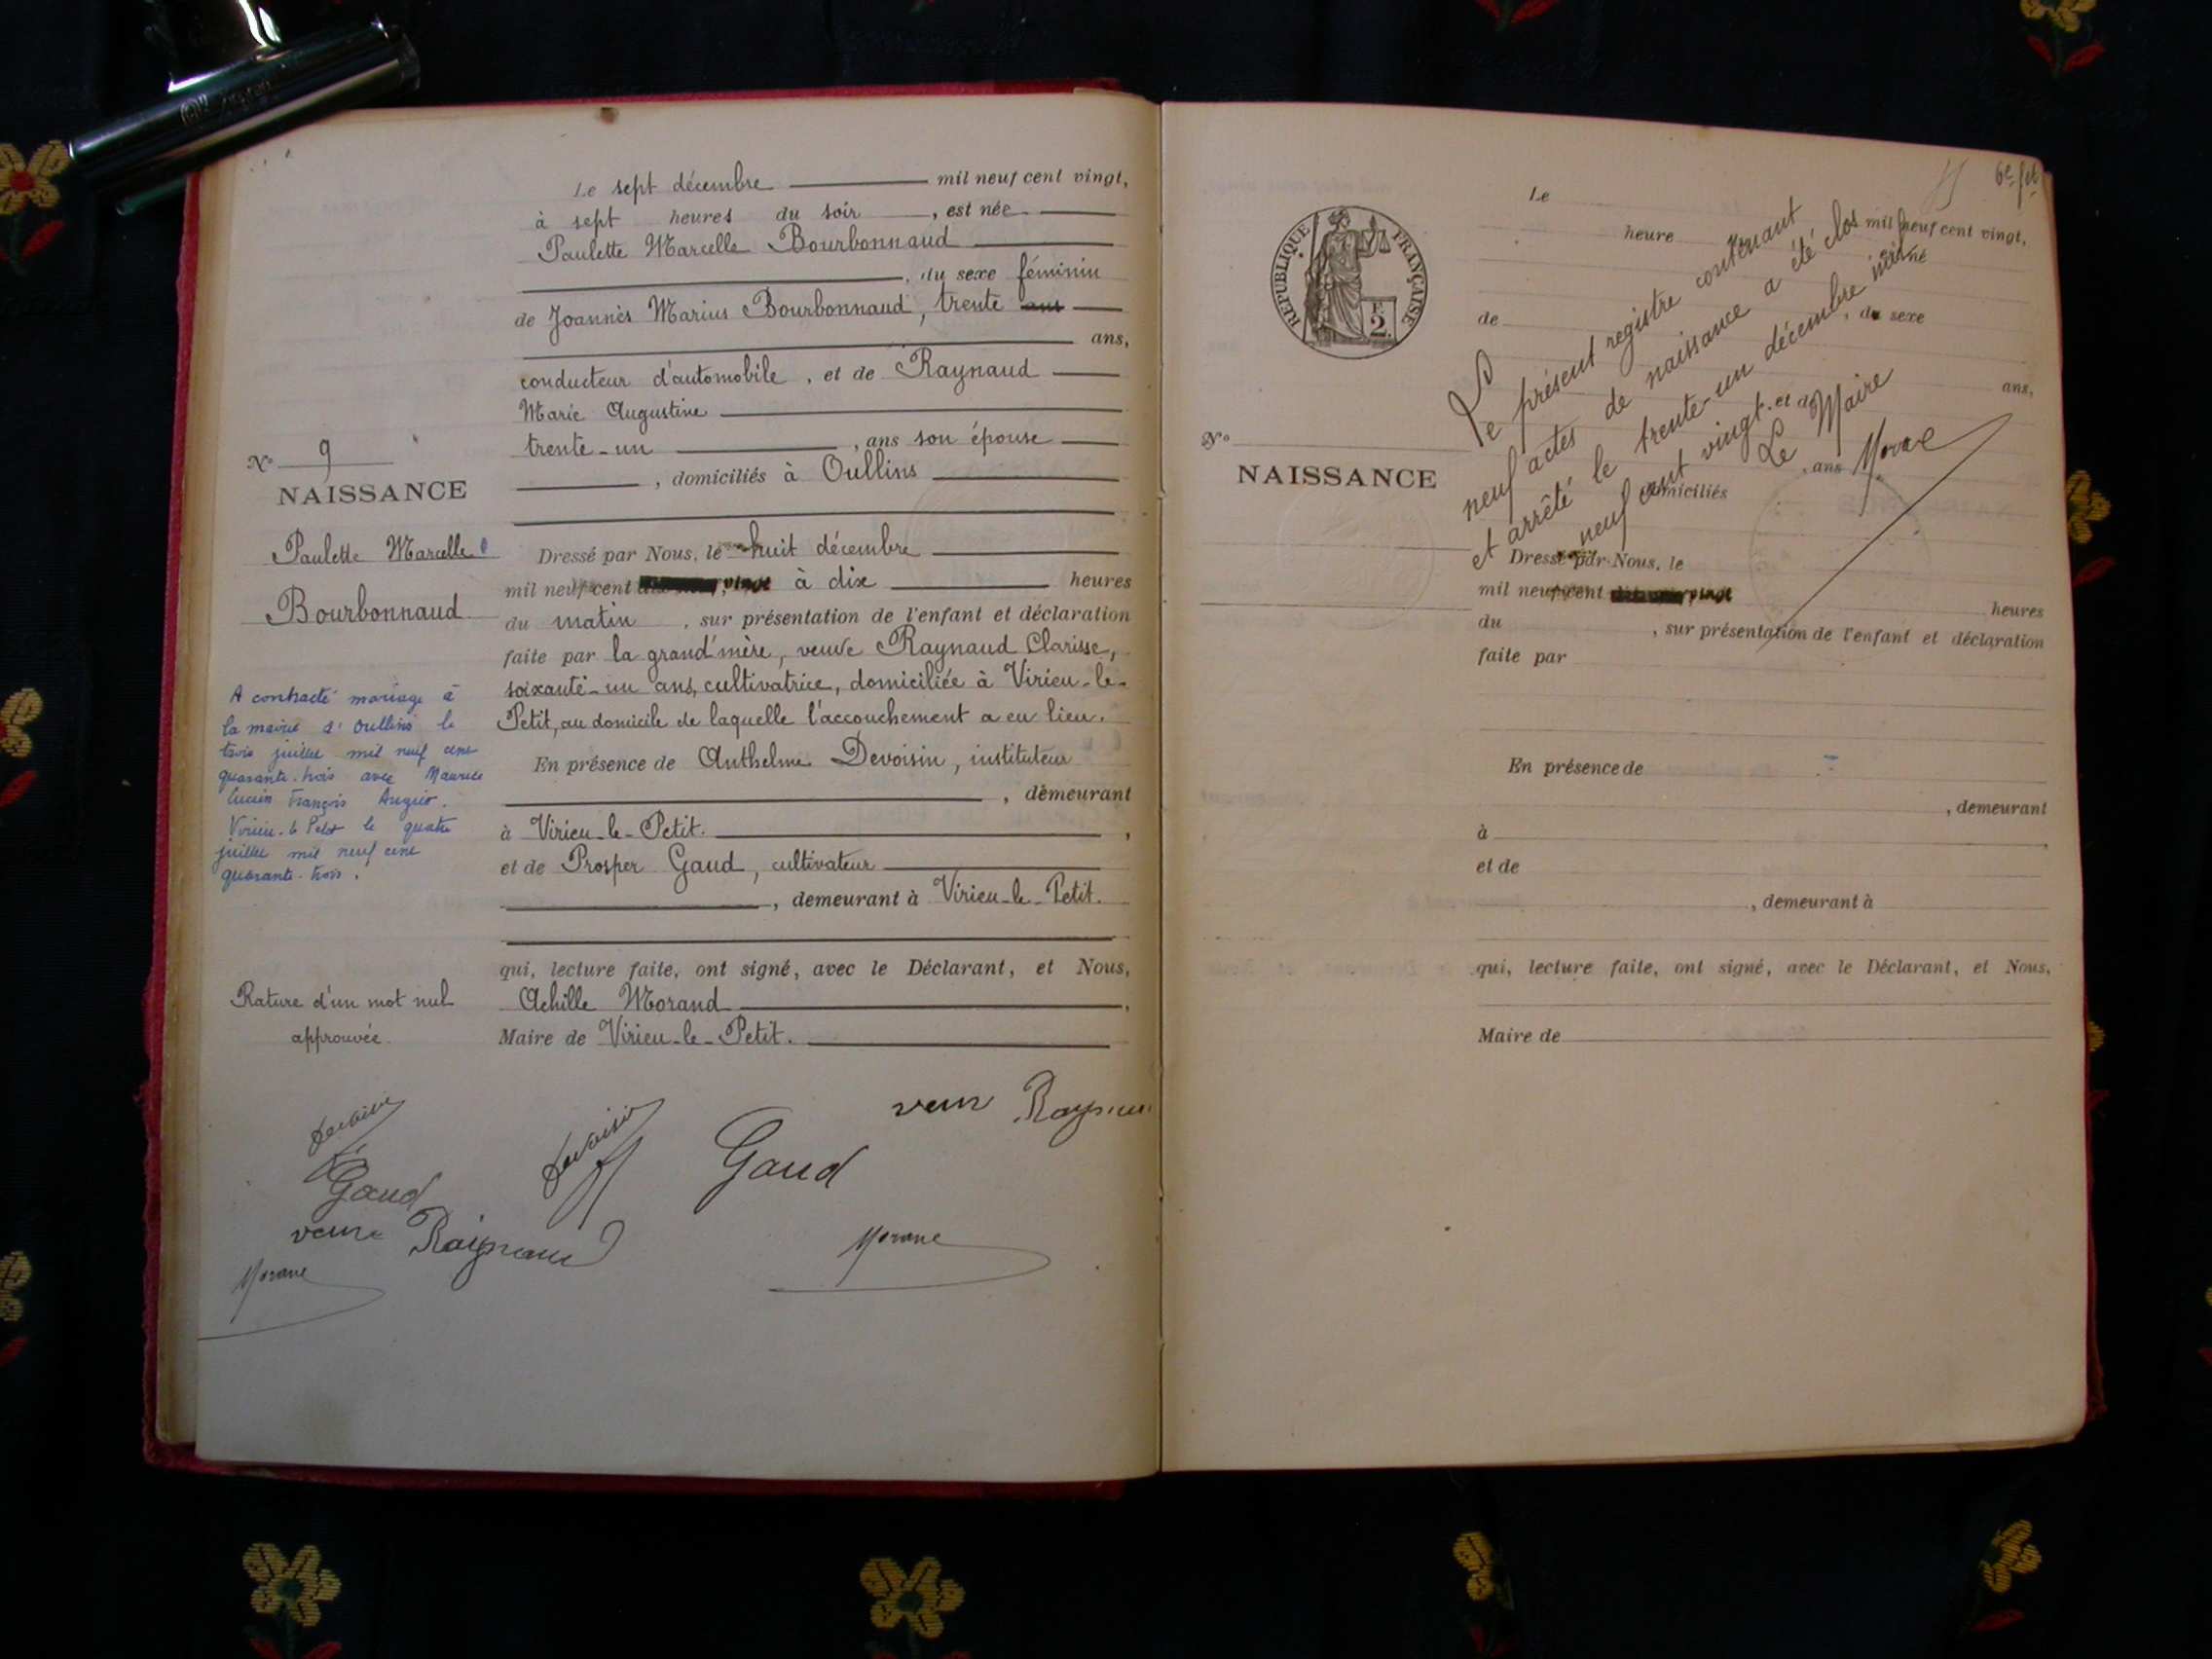 Le sept décembre mil neuf cent vingt,
à sept heures du soir, est née
Paulette Marcelle Bourbonnaud
, du sexe féminin
de Joannès Marius Bourbonnaud, trente ans
ans,
conducteur d'automobile, et de Raynaud
Marie Augustine
trente-un, ans son épouse
, domiciliés à Oullins
N° 9
NAISSANCE
Paulette Marcelle
Bourbonnaud
Dressé par Nous, le huit décembre
mil neuf cent vingt à dix heures
du matin, sur présentation de l'enfant et déclaration
faite par la grand'mère, veuve Raynaud Clarisse,
soixante-un ans, cultivatrice, domiciliée à Virieu-le-
Petit, au domicile de laquelle l'accouchement a eu lieu.
En présence de Anthelme Devoisin, instituteur
, demeurant
à Virieu-le-Petit.,
et de Prosper Gaud, cultivateur
, demeurant à Virieu-le-Petit.
qui, lecture faite, ont signé, avec le Déclarant, et Nous,
Achille Morand,
Maire de Virieu-le-Petit.
A contracté mariage à
la mairie d'Oullins le
trois juillet mil neuf cent
quarante-trois avec Maurice
Lucien François
Virieu-le-Petit le quatre
juillet mil neuf cent
quarante-trois.
Rature d'un mot nul
approuvée.
Devoisin
Gaud
veuve Raynaud
Morand
Devoisin
Gaud
veuve Raynaud
Morand
6e f et
RÉPUBLIQUE FRANÇAISE
F.
2.
Le
heure mil neuf cent vingt,
né
de, du sexe
ans,
et de
, ans
domiciliés
N°
NAISSANCE
Le présent registre contenant
neuf actes de naissance a été clos
et arrêté le trente-un décembre mil
neuf cent vingt.
Le Maire
Morand
Dressé par Nous, le
mil neuf cent vingt
heures
du, sur présentation de l'enfant et déclaration
faite par
En présence de
, demeurant
à,
et de
, demeurant à
qui, lecture faite, ont signé, avec le Déclarant, et Nous,
Maire de